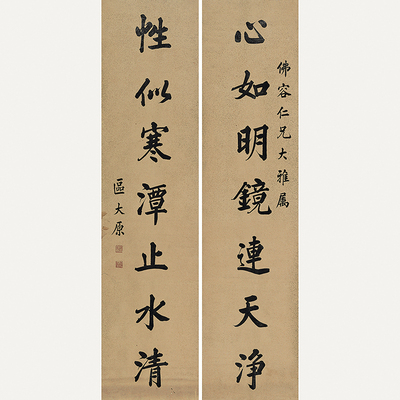 心如明鏡連天浄
佛容仁兄大雅属
性似寒潭止水清
區大原